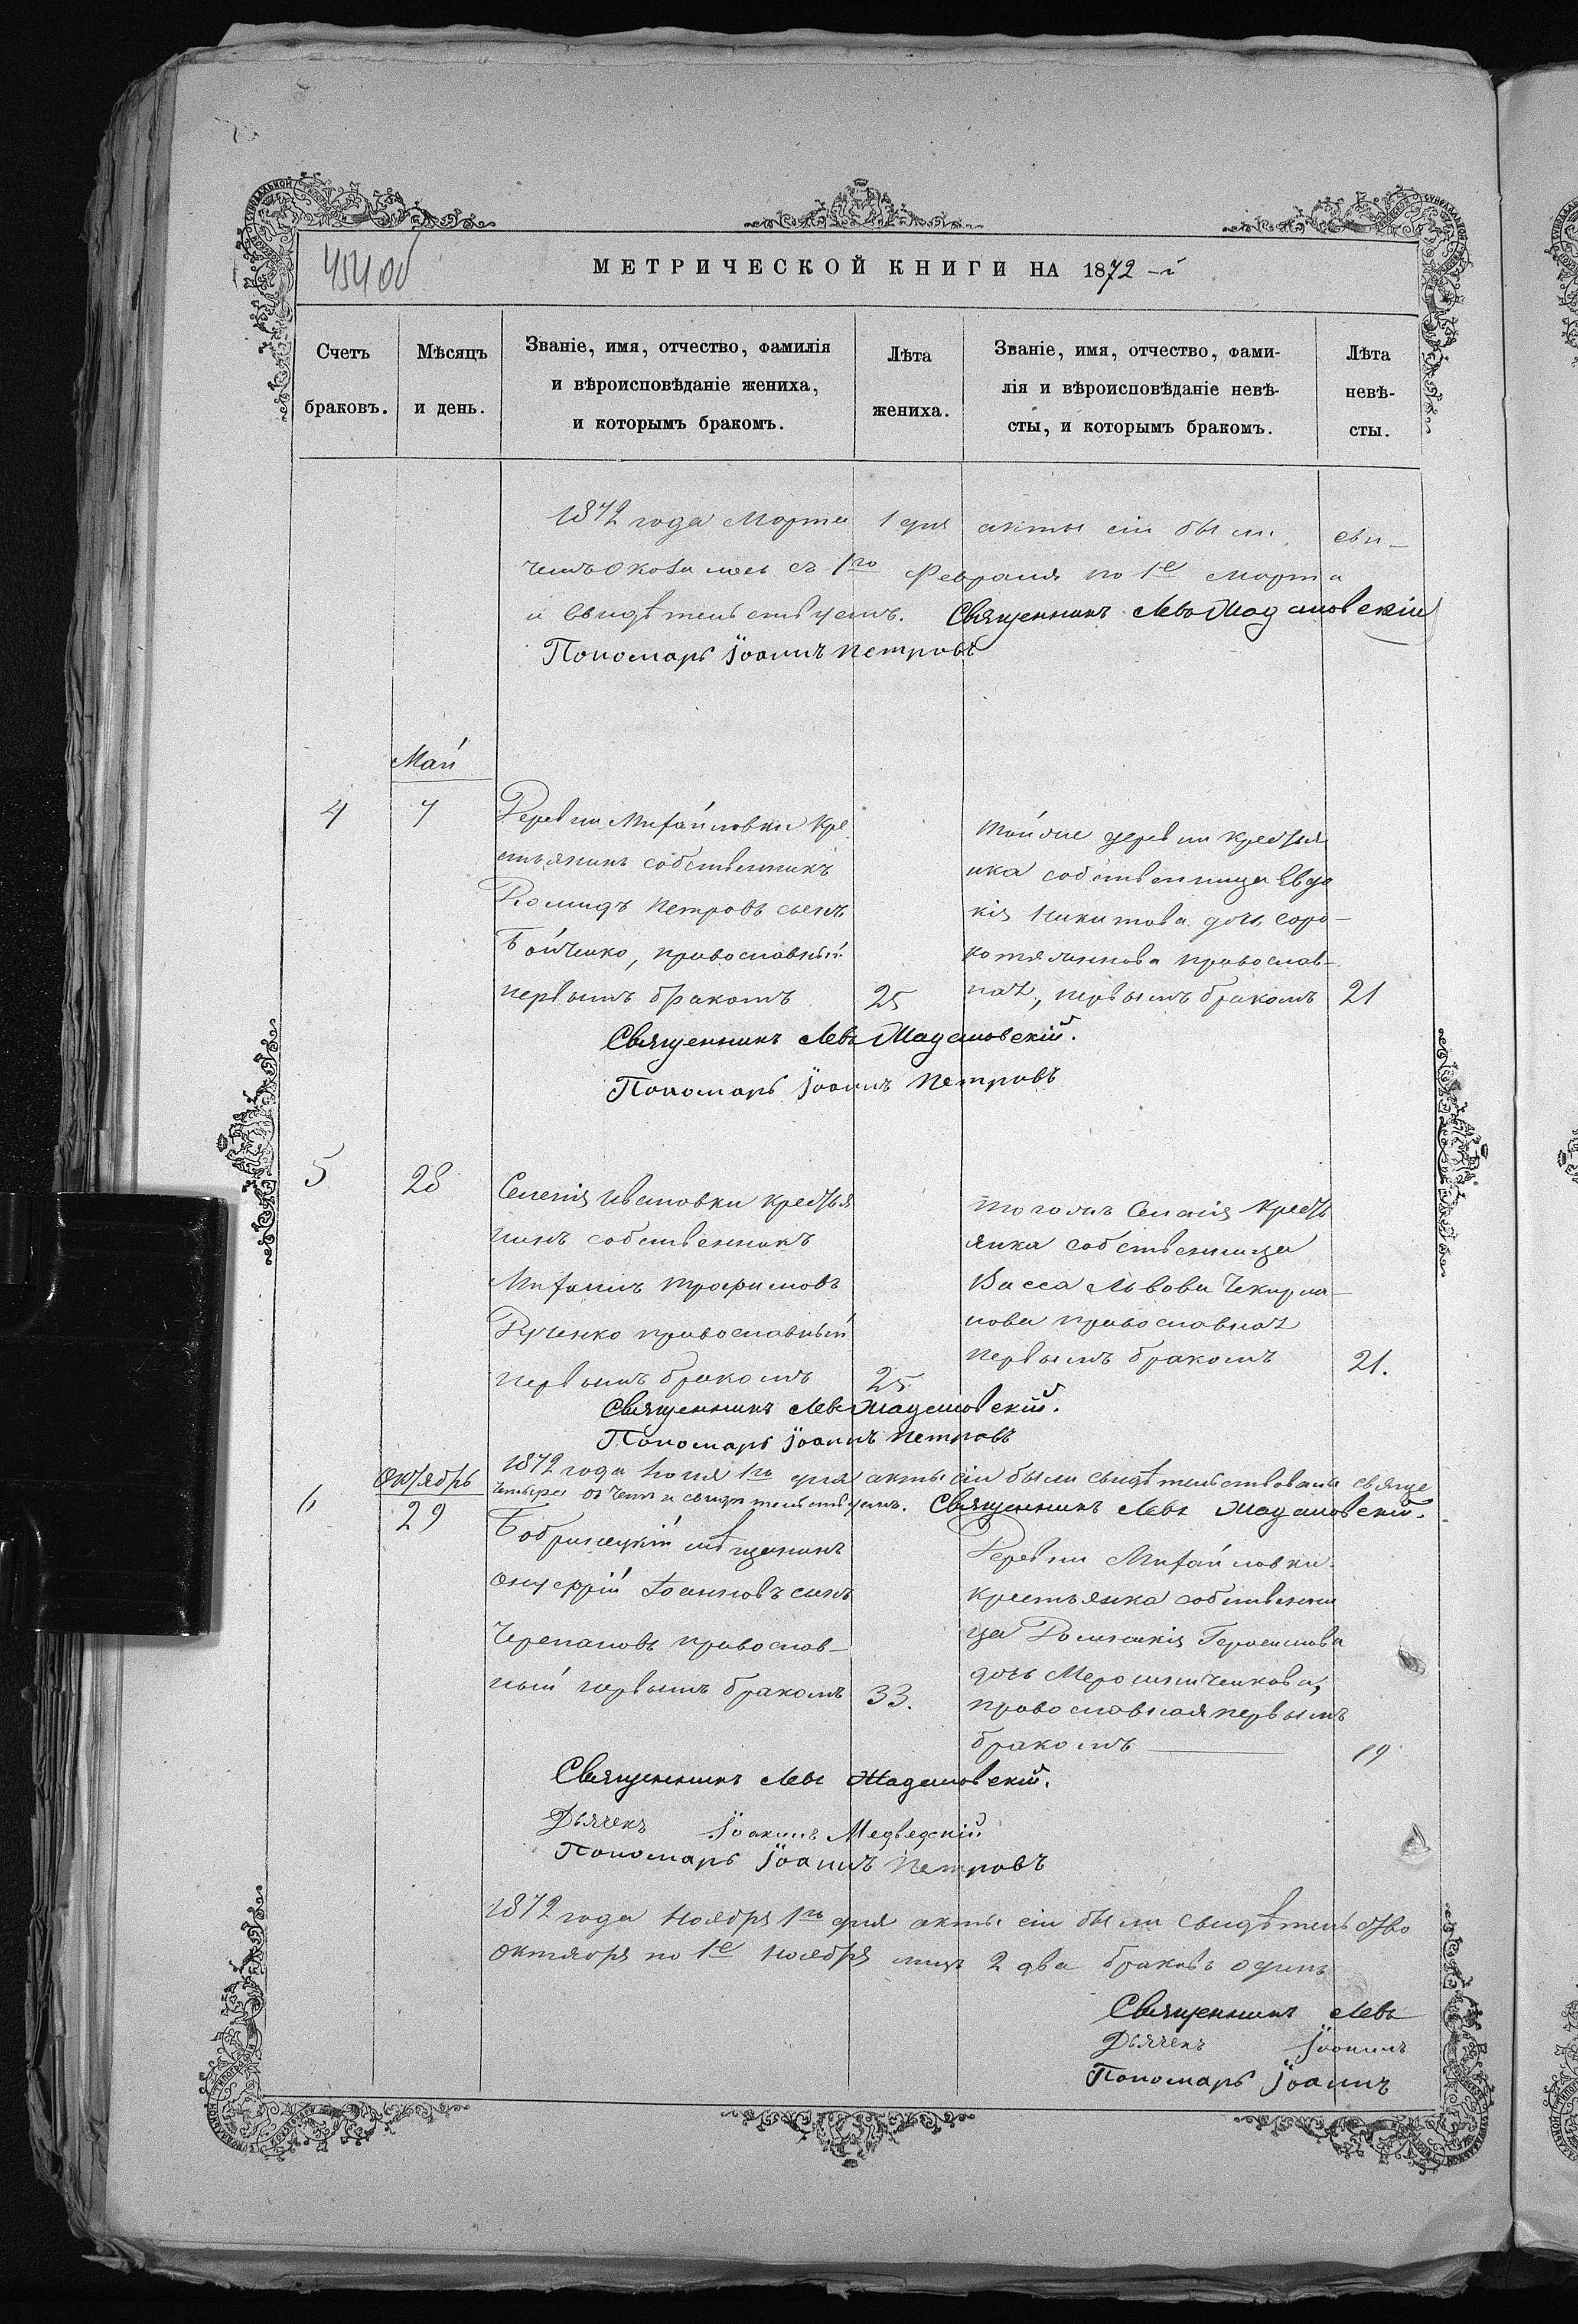 454 об
МЕТРИЧЕСКОЙ КНИГИ НА 1872-й
Счетъ браковъ.
Мѣсяцъ и день.
Званіе, имя, отчество, фамилія
и вѣроисповѣданіе жениха,
и которымъ бракомъ.
Лѣта жениха.
Званіе, имя, отчество, фами-
лія и вѣроисповѣданіе невѣ-
сты, и которымъ бракомъ.
Лѣта невѣ-
сты.
1872 года Марта 1 дня акты сіи были сви-
съ 1го Февраля по 1е Марта
и свидѣтельствуемъ. Священникъ Левъ Мадамовскій
Пономарь Іоаннъ Петровъ
Май
4
7
Деревни Михайловки кре
стьянинъ собственникъ
Петровъ сынъ
Бойченко, православный
первымъ бракомъ
25
Той же деревни крестья
нка собственница Евдо
кія Никитова дочь Соро-
православ-
ная, первымъ бракомъ
21
Священникъ Левъ Мадамовскій.
Пономарь Іоаннъ Петровъ
5
28
Селенія Ивановки крестья
нинъ собственникъ
Михаилъ Трофимовъ
Рученко православный
первымъ бракомъ
25.
Тогожъ Селенія кресть
янка собственница
Васса Львова Чекирла-
нова православная
первымъ бракомъ
21.
Священникъ Левъ Мадамовскій.
Пономарь Іоаннъ Петровъ
1872 года Іюня 1го дня акты сіи были свидѣтельствованы свяще
и свидѣтельствуемъ. Священникъ Левъ Мадамовскій.
Октябрь
6
29
Бобринецкій мѣщанинъ
Онуфрій Іоанновъ сынъ
Черепановъ православ-
ный первымъ бракомъ
33.
Деревни Михайловки
крестьянка собственни
ца Домникія Герасимова
дочь Мерошниченкова,
православная первымъ
бракомъ
19
Священникъ Левъ Мадамовскій.
Дьячекъ Іоакимъ Медведскій
Пономарь Іоаннъ Петровъ
1872 года Ноября 1го дня акты сіи были свидѣтельство
Октября по 1е Ноября лицъ 2 два браковъ одинъ
Священникъ Левъ
Дьячекъ Іоакимъ
Пономарь Іоаннъ